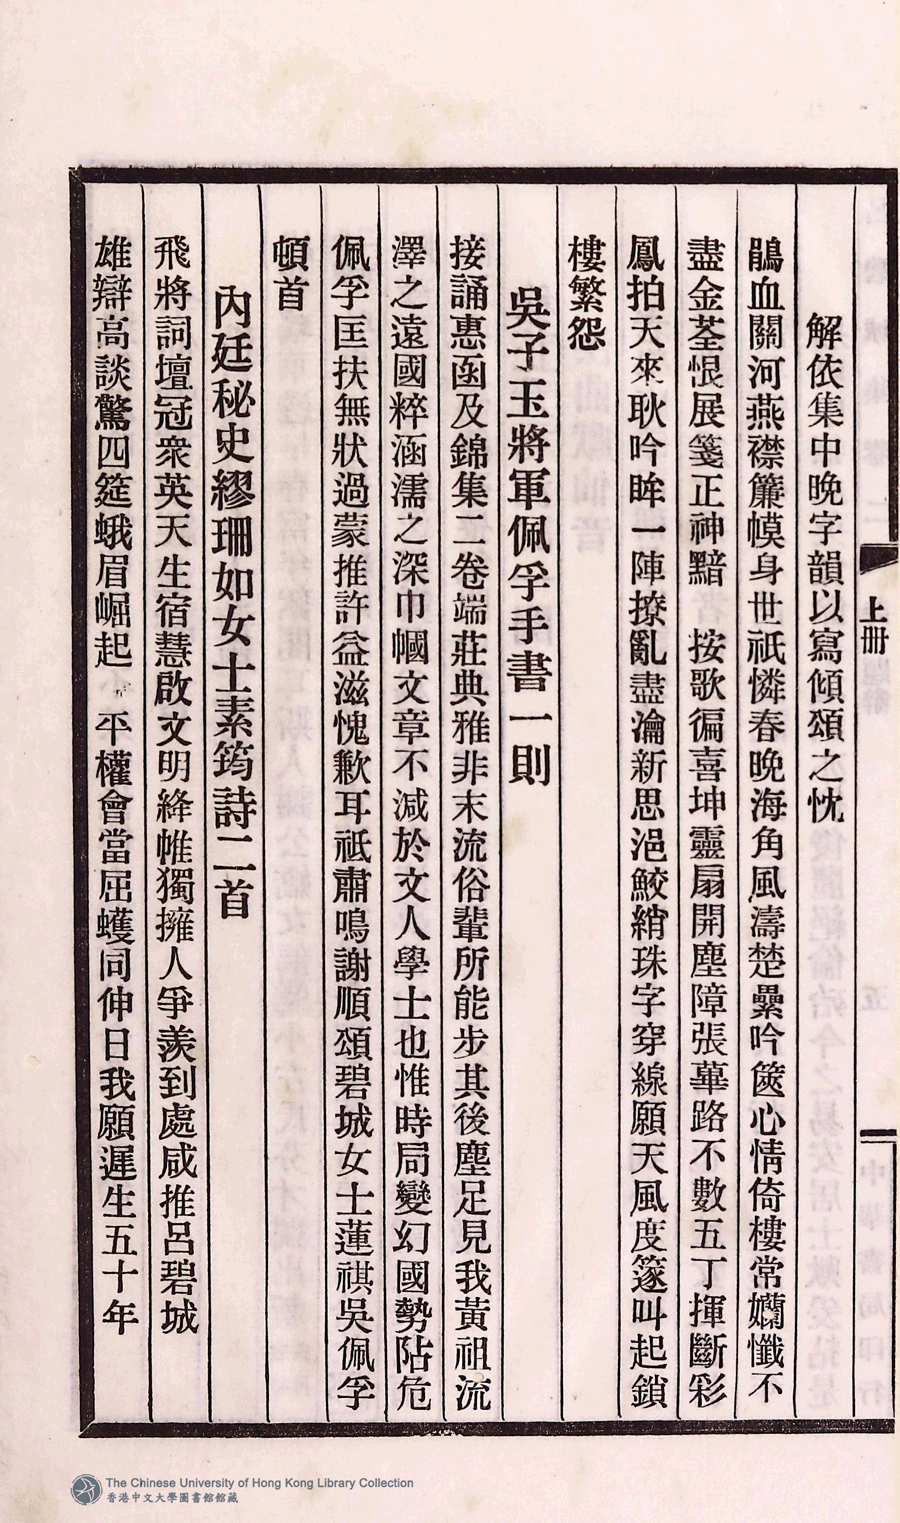 解依集中晚字韻以寫傾頌之忱
鵑血關河燕襟簾幙身世祇憐春晚海角風濤楚纍吟篋心情倚樓常嬾懺不
盡金荃恨展箋正神黯　按歌徧喜坤靈扇開塵障張蓽路不數五丁揮斷彩
鳳拍天來耿吟眸一陣撩亂盡瀹新思浥鮫綃珠字穿線願天風度篴叫起鎖
樓繁怨
吳子玉將軍佩孚手書一則
接誦惠函及錦集二卷端莊典雅非末流俗輩所能步其後塵足見我黃祖流
澤之遠國粹涵濡之深巾幗文章不減於文人學士也惟時局變幻國勢阽危
佩孚匡扶無狀過蒙推許益滋愧歉耳祗肅鳴謝順頌碧城女士蓮祺吳佩孚
頓首
內廷秘史繆珊如女士素筠詩二首
飛將詞壇冠衆英天生宿慧啟文明絳帷獨擁人爭羨到處咸推呂碧城
雄辯高談驚四筵蛾眉崛起　平權會當屈蠖同伸日我願遲生五十年
上册
The Chinese University of Hong Kong Library Collection
香港中文大學圖書館館藏